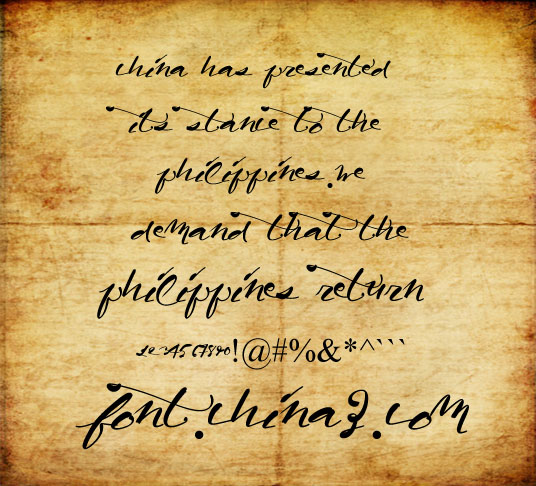 china has presented
its stance to the
philippines.we
demand that the
philippines return
1234567890!@#%&*^```
font.chinaz.com